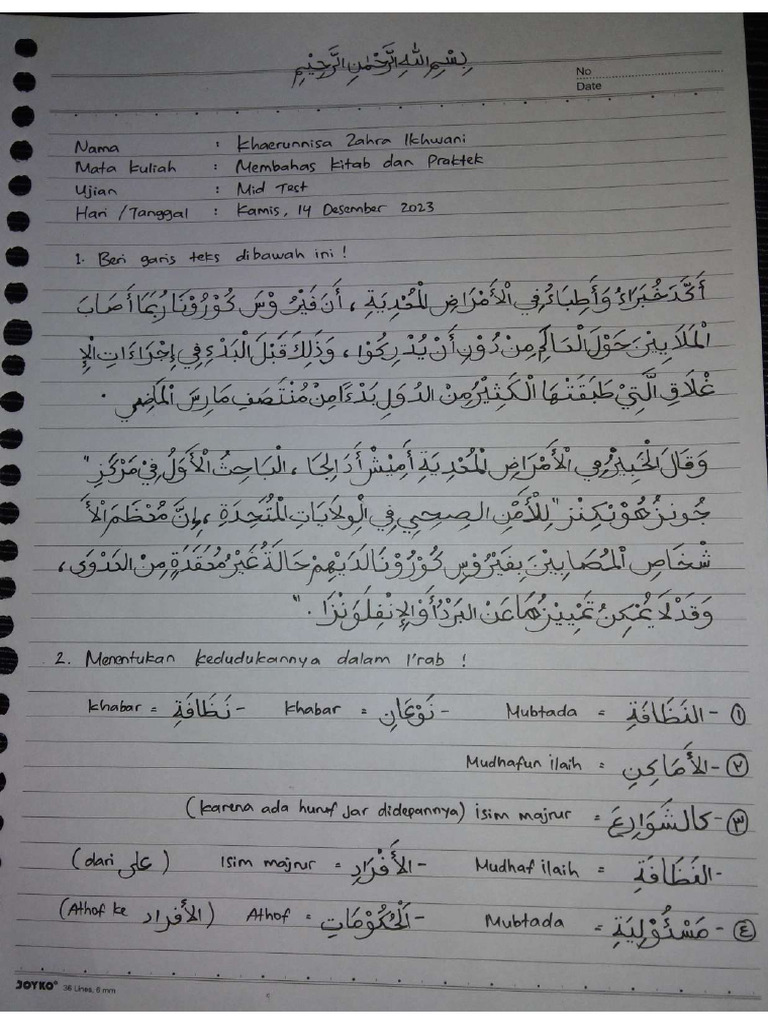 بِسْمِ اللهِ الرَّحْمٰنِ الرَّحِيْمِ
No
Date
Nama : Khaerunnisa Zahra Ikhwani
Mata Kuliah : Membahas Kitab dan Praktek
Ujian : Mid Test
Hari / Tanggal : Kamis, 14 Desember 2023
1. Beri garis teks dibawah ini !
أَكَّدَ خُبَرَاءُ وَأَطِبَاءُ فِي الْأَمْرَاضِ الْمُعْدِيَةِ ، أَنَّ فَيْرُوْسَ كُوْرُوْنَا رُبَمَا أَصَابَ
الْمَلَايِيْنَ حَوْلَ الْعَالَمِ مِنْ دُوْنِ أَنْ يُدْرِكُوْا ، وَذَلِكَ قَبْلَ الْبَدْءِ فِي إِجْرَاءَاتِ الْإِ
غْلَاقِ الَّتِيْ طَبَقَتْهَا الْكَثِيْرُ مِنَ الدُوَلِ بَدْءًا مِنْ مُنْتَصَفِ مَارِسَ الْمَاضِي .
وَقَالَ الْخَبِيْرُ فِي الْأَمْرَاضِ الْمُعْدِيَةِ أَمِيْشْ أَدَالْجَا ، الْبَاحِثُ الْأَوَّلُ فِيْ مَرْكَزِ "
جُونزْ هُوْبْكِنْز " لِلْأَمْنِ الصِحِيِ فِي الْوِلَايَاتِ الْمُتَّحِدَةِ ، إِنَّ مُعْظَمَ الْأَ
شْخَاصِ الْمُصَابِيْنَ بِفَيْرُوْسِ كُوْرُوْنَا لَدَيْهِمْ حَالَةٌ غَيْرُ مُعَقَدَةٍ مِنَ الْعَدْوَى ،
وَقَدْ لَا يُمْكِنُ تَمْيِيْزُهَا عَنِ الْبَرْدِ أَوِ الْإِنْفِلَوَنْزَا . "
2. Menentukan kedudukannya dalam I'rab !
١ - النَّظَافَةِ = Mubtada - نَوْعَانِ = Khabar - نَظَافَةِ = Khabar
٢ - الْأَمَاكِنِ = Mudhafun ilaih
٣ - كالشَّوَارِعِ = isim majrur (karena ada huruf jar didepannya)
- النَّظَافَةِ = Mudhaf ilaih - الأَفْرَادِ = Isim majrur (dari على)
٤ - مَسْئُوْلِيَةِ = Mubtada - الْحُكُوْمَاتِ = Athof (Athof ke الأفراد)
JOYKO® 36 Lines, 6 mm